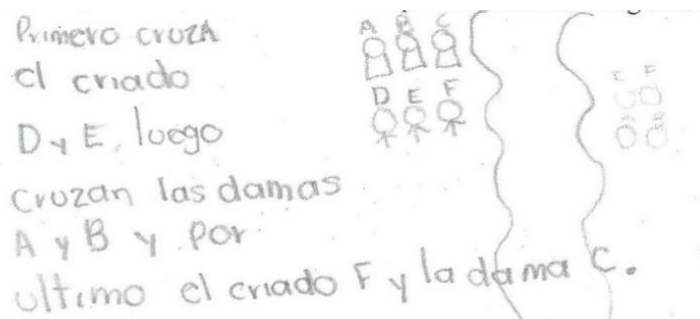 Primero cruzA
el criado
D y E. luego
cruzan las damas
A y B y por
ultimo el criado F y la dama C.
A B C
D E F